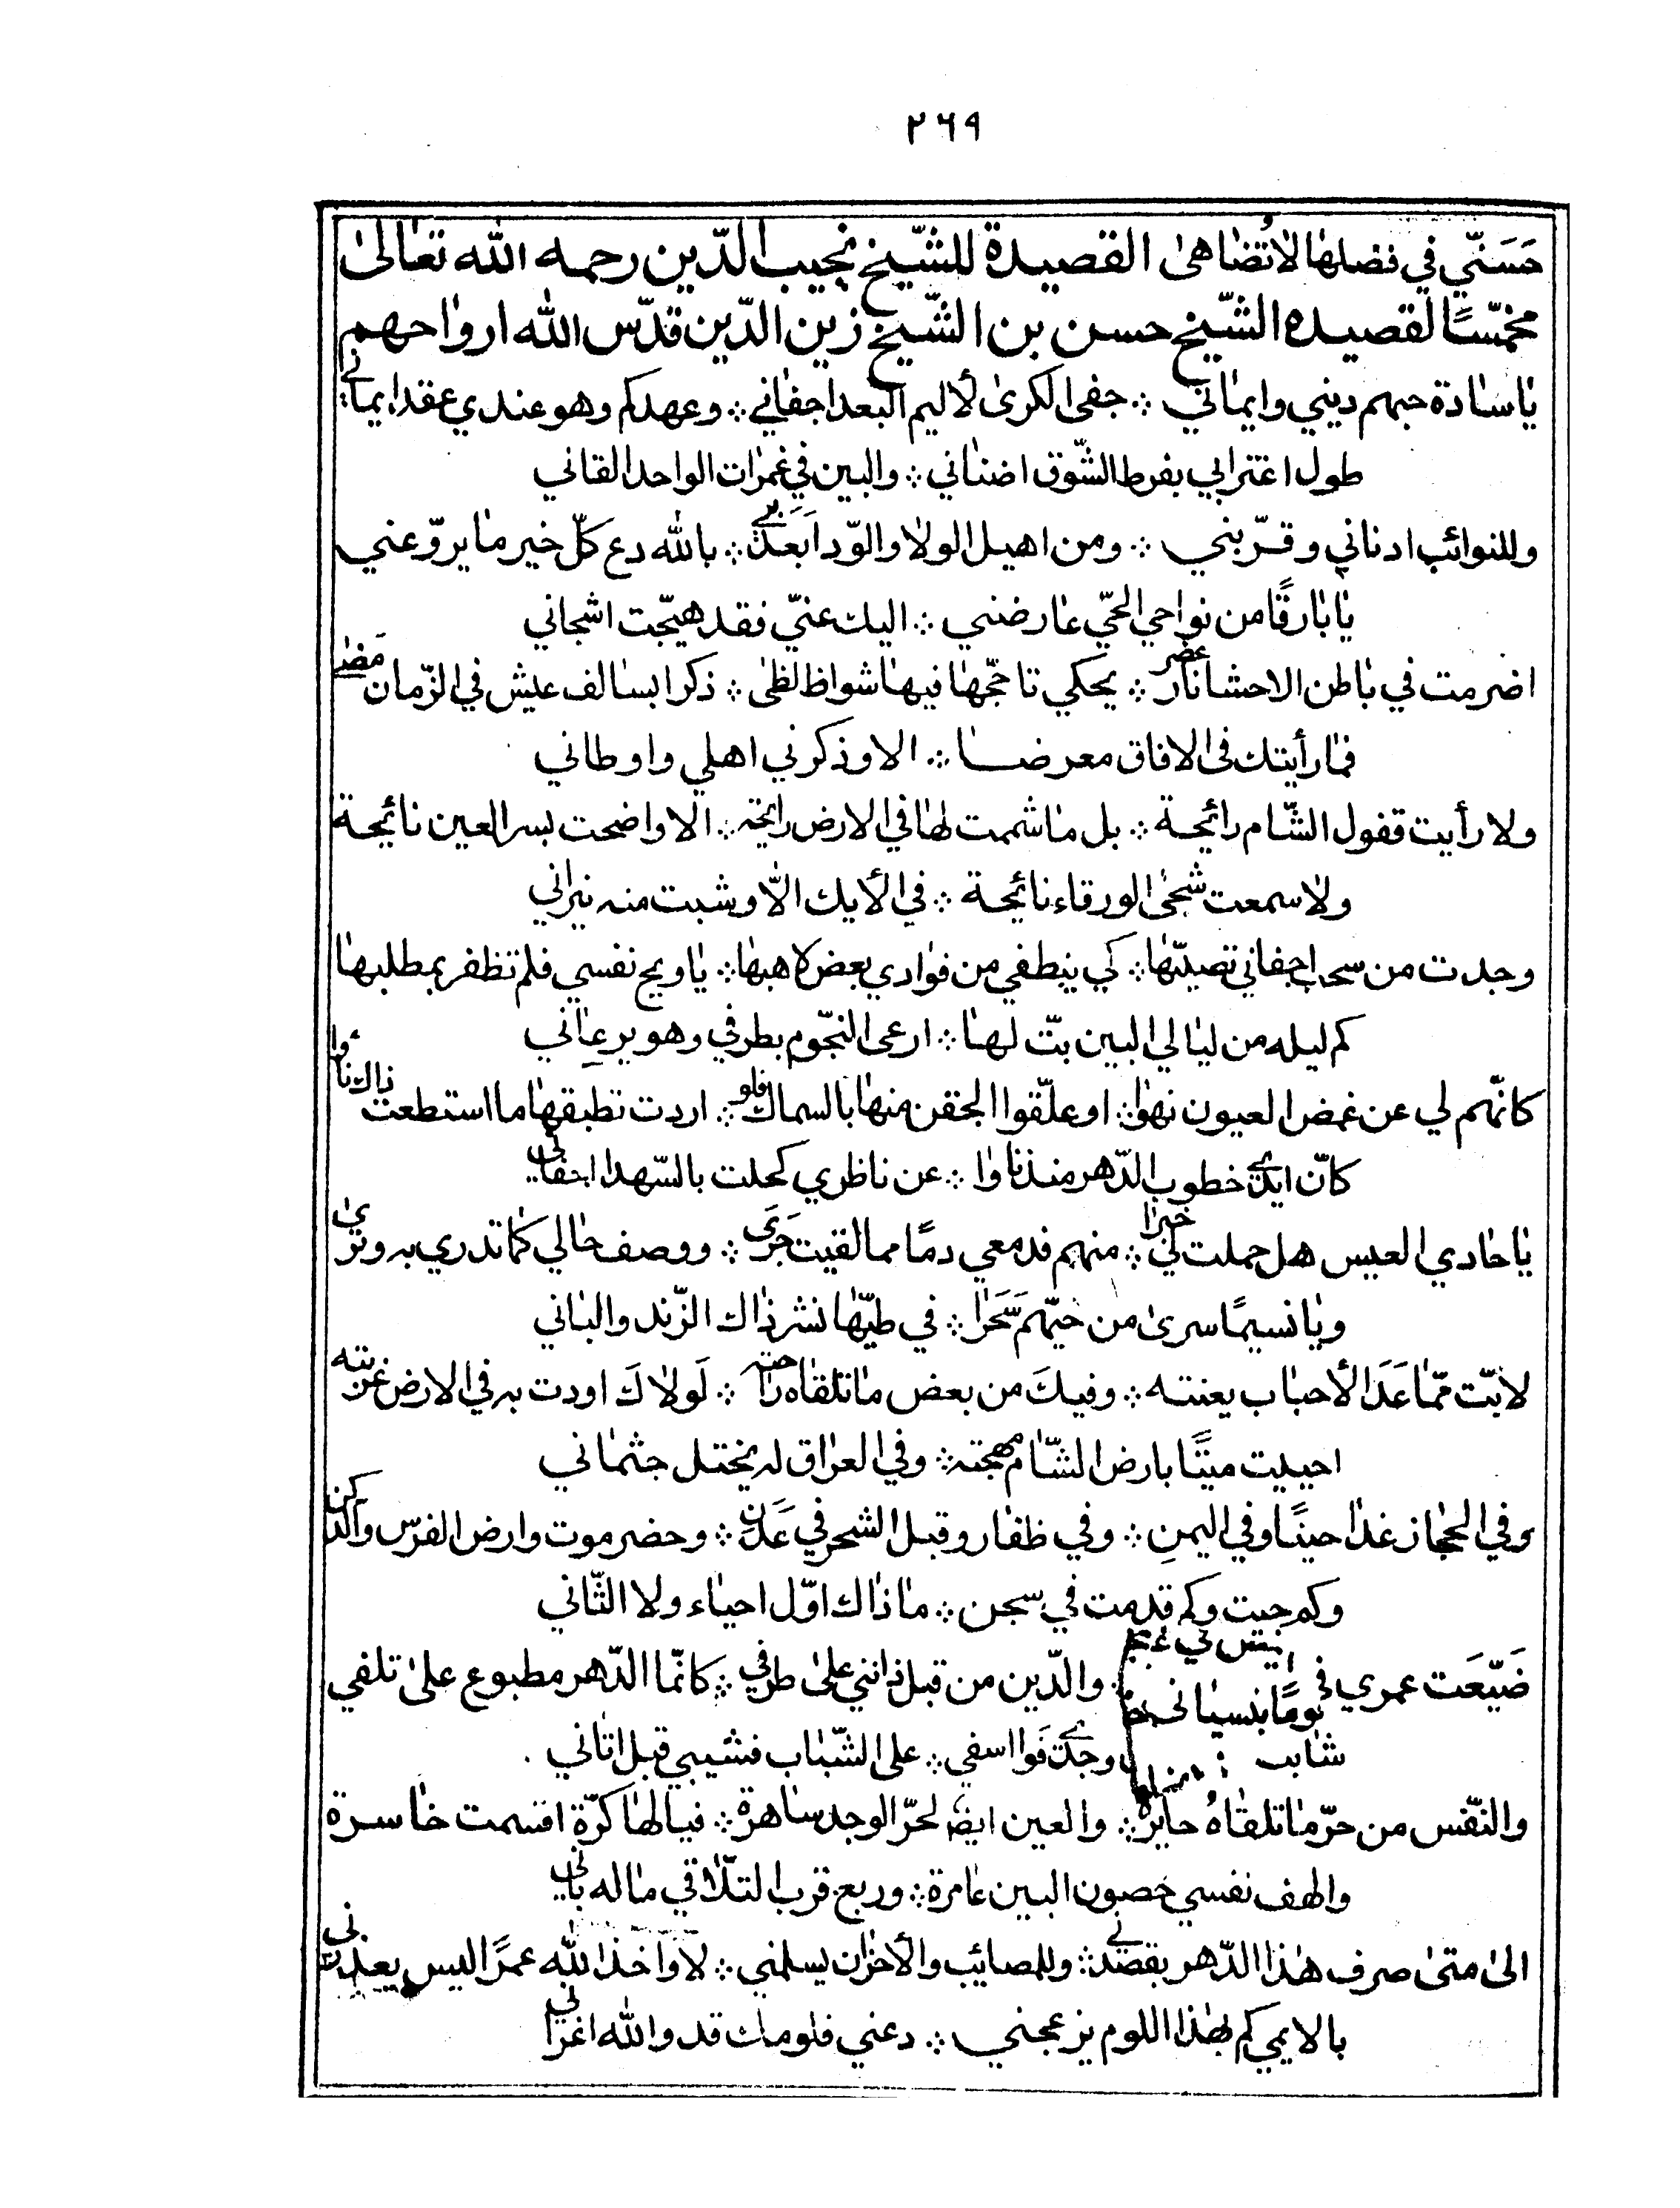 ٢٦٩
حَسَنّي في فضلها لا تُضاهىٰ القصيدة للشّيخ نجيب الدّين رحمه الله تعالىٰ
مخمّسًا لقصيده الشّيخ حسن بن الشّيخ زين الدّين قدّس الله ارواحهم
يا سادة حبهم ديني وايماني ؞ جفى الكرىٰ لأليم البعد اجفاني ؞ وعهدكم وهو عندي عقد ايماني
طول اغترابي بفرط الشّوق اضناني ؞ والبين في غمرات الواحد القاني
وللنوائب ادناني وقرّبني ؞ ومن اهيل الولا والوّد ابَعدَني ؞ بالله دع كلّ خير ما يروّعني
يا بارقًا من نواحي الحيّ عارضني ؞ اليك عنيّ فقد هيّجت اشجاني
اضرمت في باطن الاحشا نار غضى ؞ يحكي تاججّها فيها شواظ لظىٰ ؞ ذكرا بسالف عيش في الزّمان مَضىٰ
فما رأيتك في الافاق معرضا ؞ الا وذكرني اهلي واوطاني
ولا رأيت قفول الشّام رائحة ؞ بل ما شممت لها في الارض رائحة ؞ الا واضحت بسر العين نائحة
ولا سمعت شجىٰ الورقاء نائحة ؞ في الأيك الّا وشبت منه نيراني
وجدت من سحب اجفاني تصيبّها ؞ كي ينطفي من فوادي بعض لاهبها ؞ يا ويح نفسي فلم تظفر بمطلبها
كم ليله من ليالي البين بتّ لها ؞ ارعى النجّوم بطرفي وهو يرعاني
كانّهم لي عن غمض العيون نهوا ؞ او علّقوا الجفن منها بالسماك فلو ؞ اردت تطبقها ما استطعت ذاك ناوا
كانّ ايدي خطوب الدّهر منذ ناوا ؞ عن ناظري كحلت بالسّهد اجفاني
يا حادي العيس هل حملت لي خبرا ؞ منهم فدمعي دمًا مما لقيت جَرَى ؞ ووصف حالي كما تدري به وترىٰ
ويا نسيمًا سرىٰ من حيّهم سَحَرا ؞ في طيّها نشر ذاك الزّند والباني
لا بتّ ممّا عَدَ الأحباب يعنته ؞ وفيكَ من بعض ما تلقاه راحته ؞ لَولاكَ اودت به في الارض غربته
احييت ميتًا بارض الشّام مهجته ؞ وفي العراق له يختل جثماني
وفي الحجاز غذا حينًا وفي اليمنِ ؞ وفي ظفار وقبل الشحر في عَدَنٍ ؞ وحضرموت وارض الفرس والدكن
وكم حيت وكم قد مت في سجن ؞ ما ذاك اوّل احياء ولا الثّاني
ضَيّعَت عمري في ؞ والدّين من قبل ذا نني علىٰ طرفي ؞ كانّما الدّهر مطبوع علىٰ تلفي
شابت وجدي فَوا اسفي ؞ على الشّباب فشيبي قبل اتاني
والنّفس من حرّ ما تلقاهُ حايرة ؞ والعين ايضا لحرّ الوجد ساهرة ؞ فيالها كرّة اقسمت خاسرة
والهف نفسي حصون البين عامرة ؞ وربع قرب التّلاقي ماله باني
الىٰ متىٰ صرف هٰذا الدّهر يقصدني ؞ وللمصائب والأحزان يسلمني ؞ لا واخذ الله عمرًا ليس يعذرني
يا لايمي كم بهٰذا اللوم يزعجني ؞ دعني فلومك قد والله اغراني